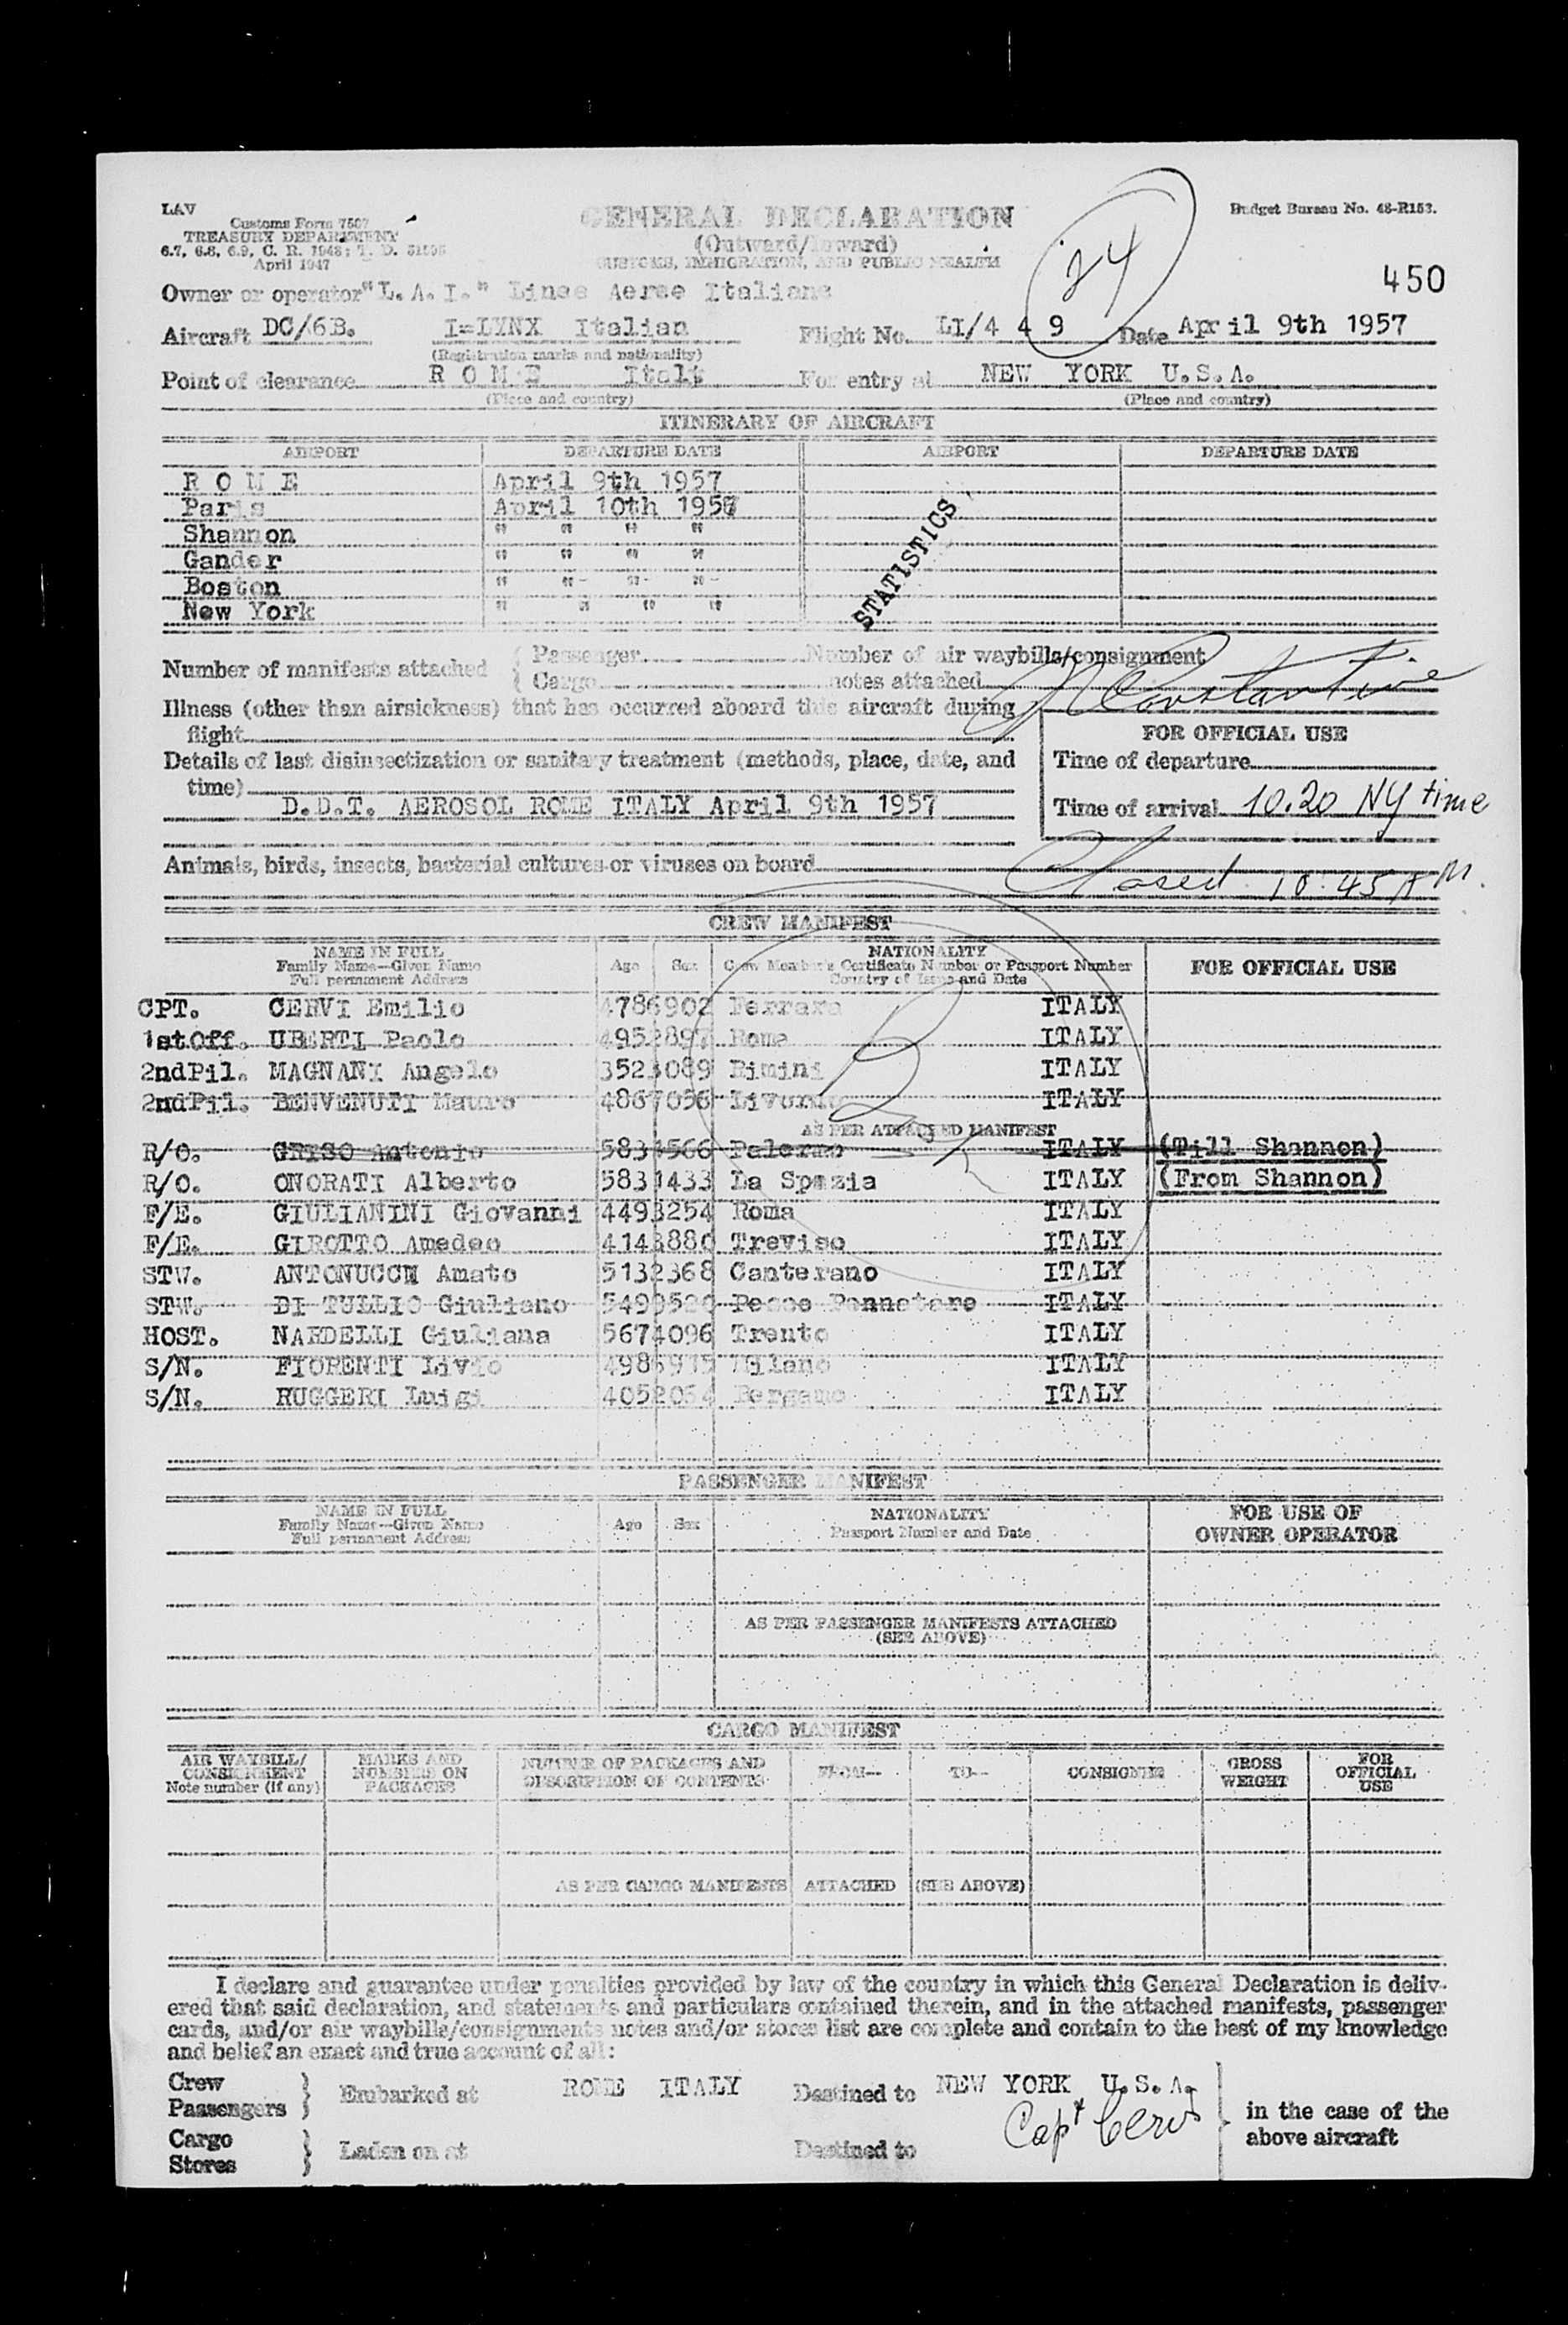 LAV
Customs Form 7507
TREASURY DEPARTMENT
6.7, 6.8, 6.9, C. R. 1943; T. D. 51505
April 1947
GENERAL DECLARATION
(Outward/Inward)
CUSTOMS, IMMIGRATION, AND PUBLIC HEALTH
Budget Bureau No. 48-R153.
24
450
Owner or operator "L. A. I." Linee Aeree Italiane
Aircraft DC/6B. I=LYNX Italian Flight No. LI/4 4 9 Date April 9th 1957
(Registration marks and nationality)
Point of clearance R O M E Italt For entry at NEW YORK U.S.A.
(Place and country) (Place and country)
ITINERARY OF AIRCRAFT
AIRPORT DEPARTURE DATE AIRPORT DEPARTURE DATE
R O M E April 9th 1957
Paris April 10th 1957
Shannon " " " "
Gander " " " "
Boston " " - " - " -
New York " " " "
STATISTICS
Number of manifests attached { Passenger Number of air waybills/consignment
{ Cargo notes attached
Constantine
Illness (other than airsickness) that has occurred aboard this aircraft during
flight
Details of last disinsectization or sanitary treatment (methods, place, date, and
time)
D.D.T. AEROSOL ROME ITALY April 9th 1957
FOR OFFICIAL USE
Time of departure
Time of arrival 10.20 NY time
Animals, birds, insects, bacterial cultures or viruses on board
Closed 10:45 AM.
CREW MANIFEST
NAME IN FULL
Family Name—Given Name
Full permanent Address
Age Sex
NATIONALITY
Crew Member's Certificate Number or Passport Number
Country of Issue and Date
FOR OFFICIAL USE
CPT. CERVI Emilio 4786902 Ferrara ITALY
1stOff. UBERTI Paolo 4952897 Roma ITALY
2ndPil. MAGNANI Angelo 3523089 Rimini ITALY
2ndPil. BENVENUTI Mauro 4867056 Livorno ITALY
AS PER ATTACHED MANIFEST
R/O. GRISO Antonio 5834566 Palermo ITALY (Till Shannon)
R/O. ONORATI Alberto 5834433 La Spezia ITALY (From Shannon)
F/E. GIULIANINI Giovanni 4493254 Roma ITALY
F/E. GIROTTO Amedeo 4143880 Treviso ITALY
STW. ANTONUCCH Amato 5132368 Canterano ITALY
STW. DI TULLIO Giuliano ITALY
HOST. NARDELLI Giuliana 5674096 Trento ITALY
S/N. FIORENTI Livio Milano ITALY
S/N. RUGGERI Luigi Bergamo ITALY
PASSENGER MANIFEST
NAME IN FULL
Family Name—Given Name
Full permanent Address
Age Sex
NATIONALITY
Passport Number and Date
FOR USE OF
OWNER OPERATOR
AS PER PASSENGER MANIFESTS ATTACHED
(SEE ABOVE)
CARGO MANIFEST
AIR WAYBILL/
CONSIGNMENT
Note number (if any)
MARKS AND
NUMBERS ON
PACKAGES
NUMBER OF PACKAGES AND
DESCRIPTION OF CONTENTS
FROM—
TO—
CONSIGNEE
GROSS
WEIGHT
FOR
OFFICIAL
USE
AS PER CARGO MANIFESTS ATTACHED (SEE ABOVE)
I declare and guarantee under penalties provided by law of the country in which this General Declaration is deliv-
ered that said declaration, and statements and particulars contained therein, and in the attached manifests, passenger
cards, and/or air waybills/consignments notes and/or stores list are complete and contain to the best of my knowledge
and belief an exact and true account of all:
Crew
Passengers } Embarked at ROME ITALY Destined to NEW YORK U.S.A.
Capt Cervi
in the case of the
above aircraft
Cargo
Stores } Laden on at Destined to